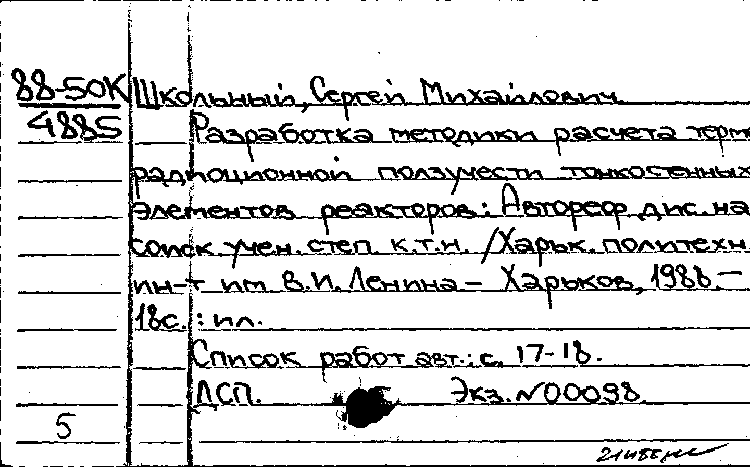 88-50К Школьный, Сергей Михайлович.
4885 Разработка методики расчета терм
радиоционной ползучести тонкостенных
элементов реакторов: Автореф. дис. на
соиск. учен. степ. к.т.н. /Харьк. политехн.
ин-т им В.И. Ленина – Харьков, 1988. –
18с. : ил.
Список работ авт.: с. 17-18.
ДСП. Экз. №00098
5